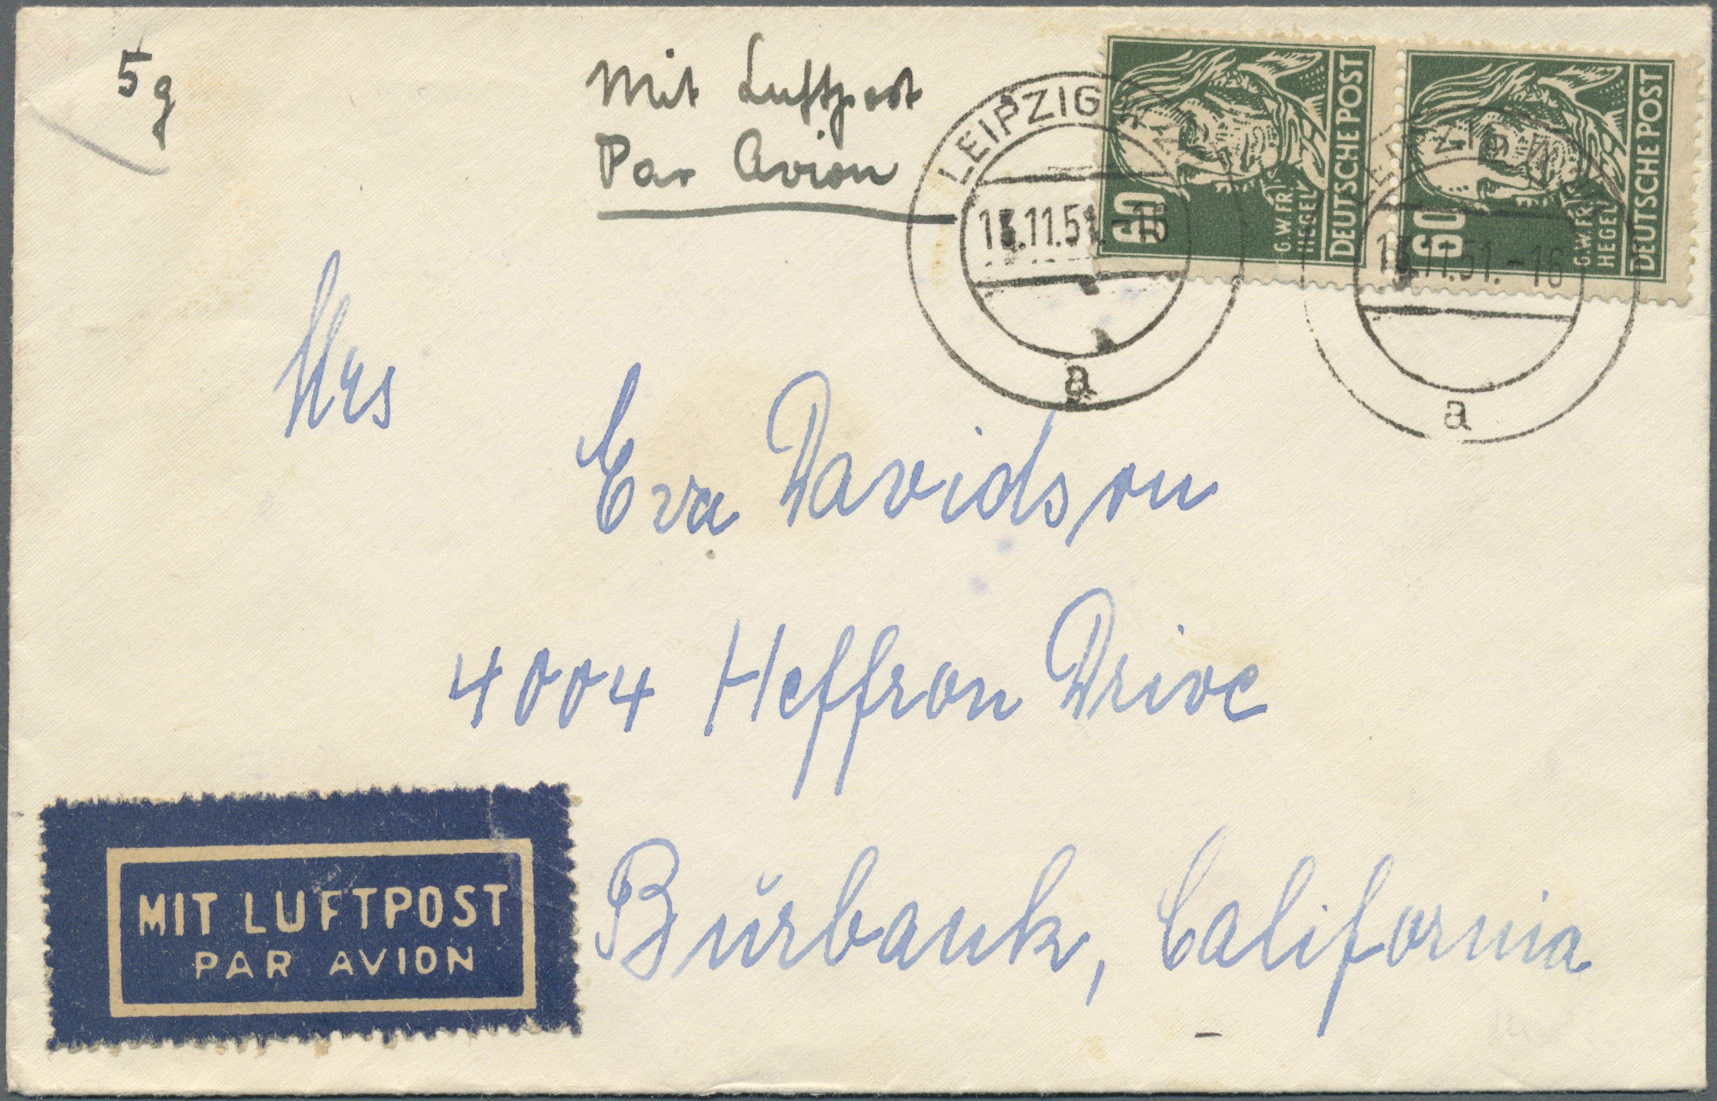 5g
Mit Luftpost
Par Avion
DEUTSCHE POST
G.W.FR.
HEGEL
60
DEUTSCHE POST
G.W.FR.
HEGEL
60
LEIPZIG
.11.51.-16
a
.11.51.-16
a
Mrs
Eva Davidson
4004 Heffron Drive
Burbank, California
MIT LUFTPOST
PAR AVION